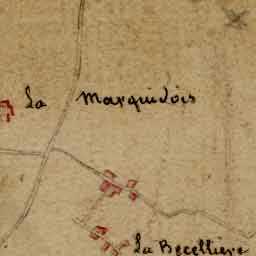 La Marquidois
La Becelliere